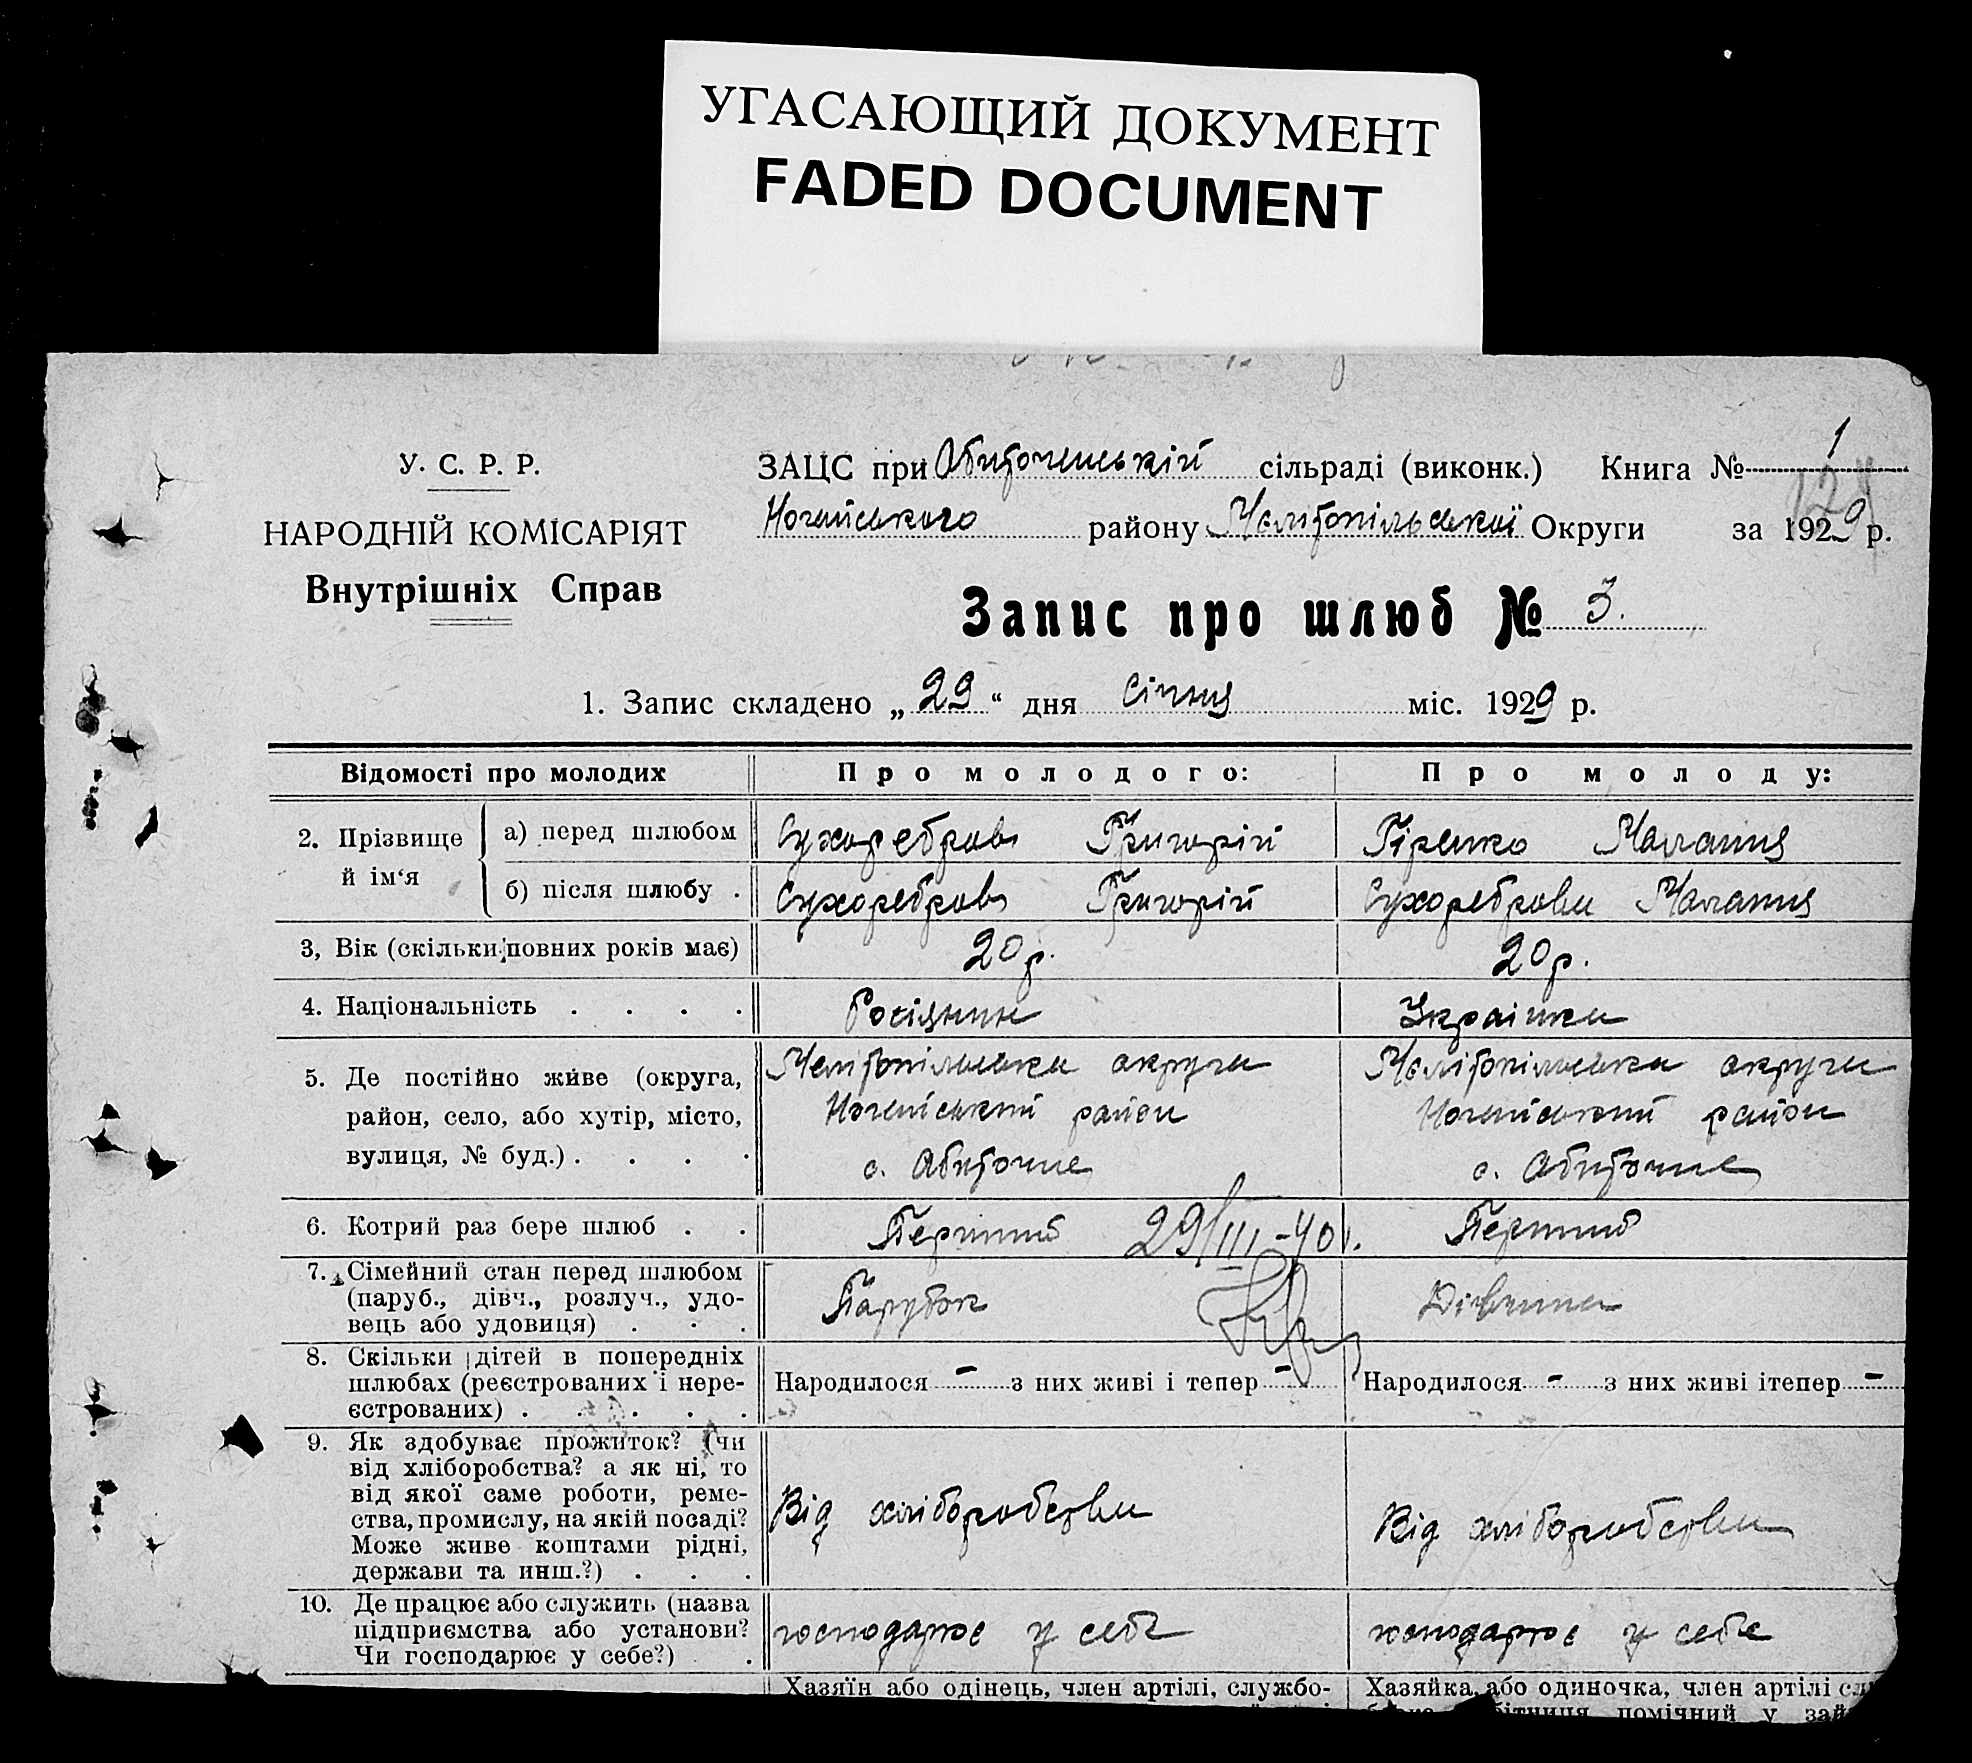 УГАСАЮЩИЙ ДОКУМЕНТ
FADED DOCUMENT
У. С. Р. Р.
НАРОДНІЙ КОМІСАРІЯТ
Внутрішніх Справ
ЗАЦС при Обиточенській сільраді (виконк.) Книга № 1
Ногайського району Мелітопільської Округи за 1929 р.
Запис про шлюб № 3.
1. Запис складено „29“ дня Січня міс. 1929 р.
Відомості про молодих
Про молодого:
Про молоду:
2. Прізвище й ім‘я
а) перед шлюбом
Сухоребров Григорій
Гіренко Малания
б) після шлюбу .
Сухоребров Григорій
Сухореброва Малания
3, Вік (скільки повних років має)
20 р.
20 р.
4. Національність . . . .
Росіянин
Українка
5. Де постійно живе (округа,
район, село, або хутір, місто,
вулиця, № буд.) . . . .
Мелітопільська округа
Ногайський район
с. Обиточне
Мелітопільська округа
Ногайський район
с. Обиточне
6. Котрий раз бере шлюб . .
Перший 29/III-40 г.
Перший
7. Сімейний стан перед шлюбом
(паруб., дівч., розлуч., удо-
вець або удовиця) . . .
Парубок
Дівчина
8. Скільки дітей в попередніх
шлюбах (реєстрованих і нере-
єстрованих) . . . . .
Народилося - з них живі і тепер -
Народилося - з них живі ітепер -
9. Як здобуває прожиток? (чи
від хліборобства? а як ні, то
від якої саме роботи, реме-
ства, промислу, на якій посаді?
Може живе коштами рідні,
держави та инш.?) . . .
Від хліборобства
Від хліборобства
10. Де працює або служить (назва
підприємства або установи?
Чи господарює у себе?) .
господарює у себе
господарює у себе
Хазяїн або одінець, член артілі, службо-
Хазяйка, або одиночка, член артілі
помічний у